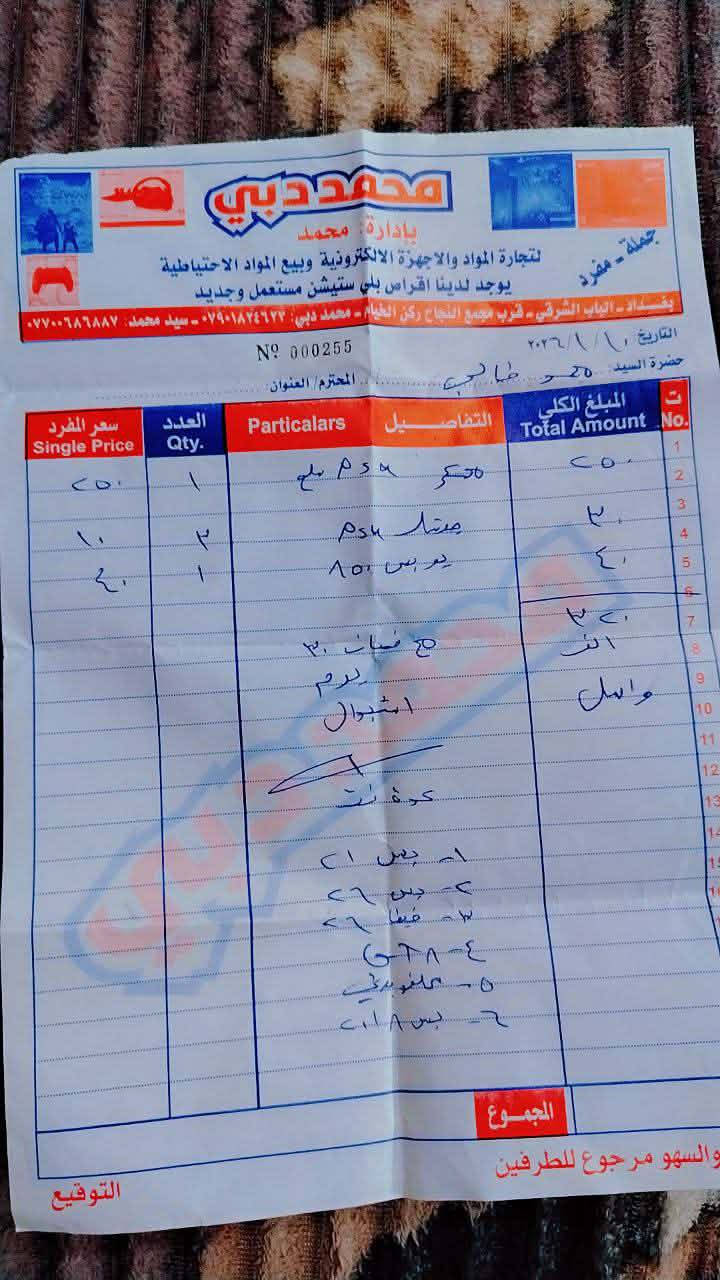 محمد دبي
بإدارة: محمد
جملة - مفرد
لتجارة المواد والاجهزة الالكترونية وبيع المواد الاحتياطية
يوجد لدينا اقراص بلي ستيشن مستعمل وجديد
بغداد - الباب الشرقي - قرب مجمع النجاح ركن الخيام - محمد دبي: ٠٧٩٠١٨٢٤٦٢٢ - سيد محمد: ٠٧٧٠٠٦٨٦٨٨٧
Nº 000255
التاريخ ١٠/١/٢٠٢٦
حضرة السيد: المحترم/ العنوان:
ت المبلغ الكلي التفاصيل Particalars العدد سعر المفرد
No. Total Amount Qty. Single Price
1
2 ٢٥٠ ١ ٢٥٠
3
4 ٣٠ ٣ ١٠
5 ٤٠ ٨٥٠ ١ ٤٠
6
7 ٣٢٠
8 الف ٣٠
9 واصل يوم
10 اشبوال
11
12
13
14
15 ١- بيس ٢١
16 ٢- بيس ٢٦
٣- فيفا ٢٦
٤-
٥-
٦- بيس
محمد دبي
المجموع
والسهو مرجوع للطرفين
التوقيع